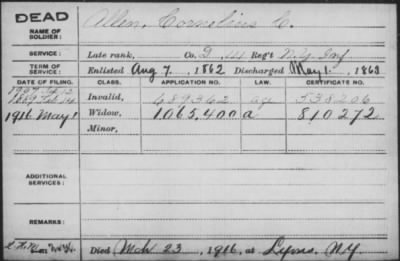 DEAD
NAME OF SOLDIER: Allen, Cornelius C.
SERVICE: Late rank, Co. D, 14 Reg't N.Y. Inf
TERM OF SERVICE: Enlisted Aug 7, 1862 Discharged May 1, 1863
DATE OF FILING. CLASS. APPLICATION NO. LAW. CERTIFICATE NO.
1907
1889 Feb 14 Invalid, 689362 538206
1916 May 1 Widow, 1065,400 a 810272
Minor,
ADDITIONAL SERVICES:
REMARKS:
Died Mch 23, 1916, at Lyons, N.Y.